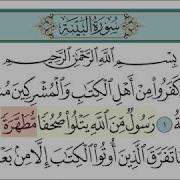 سُورَةُ البَيِّنَةِ
بِسْمِ اللَّهِ الرَّحْمَٰنِ الرَّحِيمِ
كَفَرُوا مِنْ أَهْلِ الْكِتَابِ وَالْمُشْرِكِينَ
١ رَسُولٌ مِّنَ اللَّهِ يَتْلُوا صُحُفًا مُّطَهَّرَةً
تَفَرَّقَ الَّذِينَ أُوتُوا الْكِتَابَ إِلَّا مِن بَعْدِ